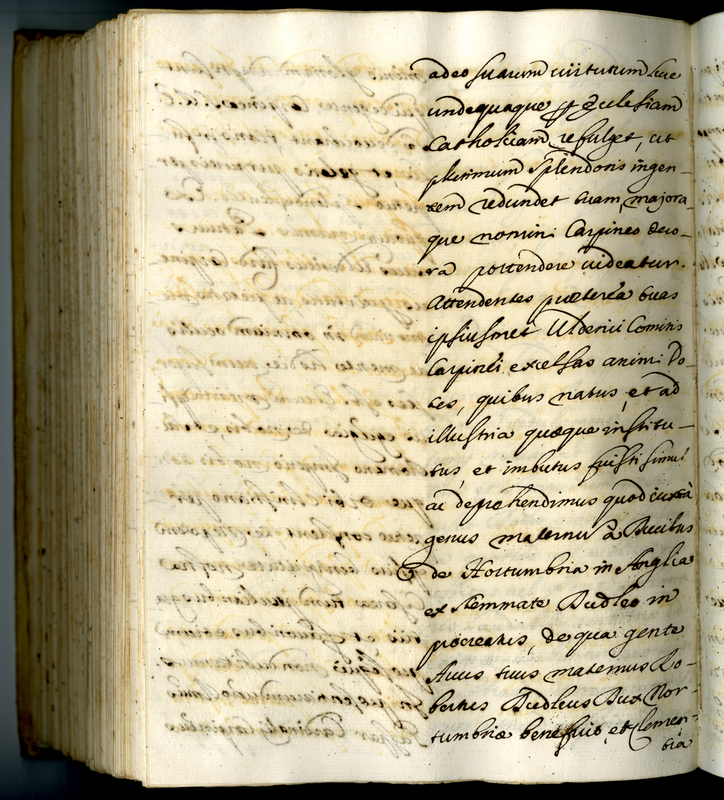 adeo suarum virtutum luce
undequaque p Ecclesiam
Catholicam refulget, ut
plurimum splendoris ingen-
tem redundet tuam, majora-
que nomini Carpineo deco-
ra portendere videatur.
Attendentes præterea tuas
ipsiusmet Ulderici Comitis
Carpinei excelsas animi Do-
tes, quibus natus, et ad
illustria quæque institu-
tus, et imbutus fuisti simul
ac deprehendimus quod iuxta
genus maternũ à Ducibus
de Nortumbria in Anglia
ex stemmate Dudleo in
procreatis, de qua gente
Avus tuus maternus Ro-
bertus Dudleus Dux Nor-
tumbriæ benefício et Clemen-
tia